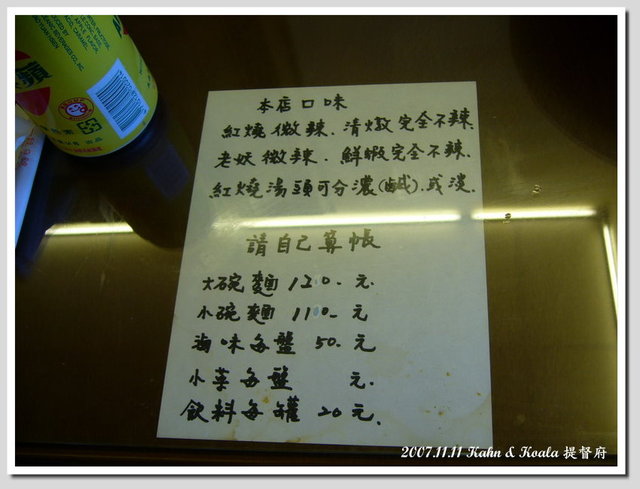 蘋
本店口味
紅燒微辣．清燉完全不辣．
老妖微辣．鮮蝦完全不辣．
紅燒湯頭可分濃(鹹)．或淡．
請自己算帳
大碗麵 120-元．
小碗麵 110-元
滷味每盤 50.元
小菜每盤 元．
飲料每罐 20元．
2007.11.11 Kahn & Koala 提督府